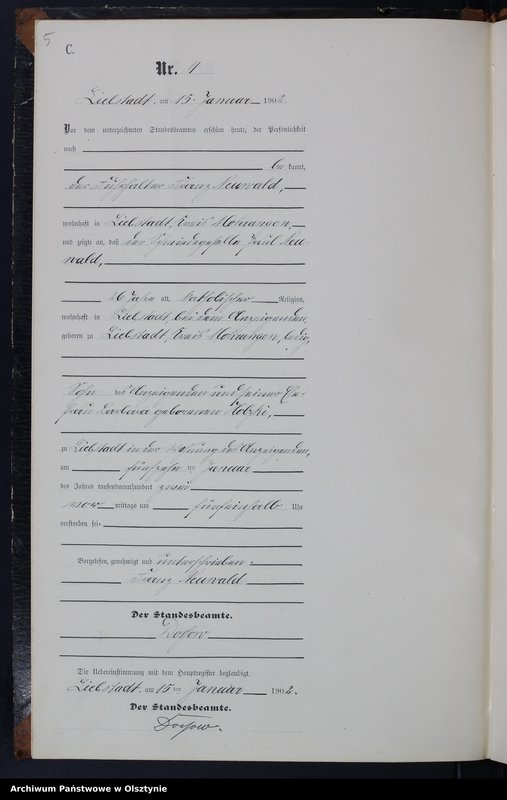 5
C.
Nr. 4
Liebstadt, am 15. Januar 1902.
Vor dem unterzeichneten Standesbeamten erschien heute, der Persönlichkeit
nach
be kannt,
der Franz Neuwald,
wohnhaft in Liebstadt, Kreis Mohrungen,
und zeigte an, daß der Schmiedegeselle Paul Neu
wald,
26 Jahre alt, katholischer Religion,
wohnhaft in Liebstadt, bei dem Anzeigenden,
geboren zu Liebstadt, Kreis Mohrungen, ledig,
Sohn des Anzeigenden und seiner Ehe
frau Barbara geborenen
zu Liebstadt in der Wohnung des Anzeigenden,
am fünfzehn ten Januar
des Jahres tausendneunhundert zwei
vor mittags um fünfeinhalb Uhr
verstorben sei.
Vorgelesen, genehmigt und unterschrieben:
Franz Neuwald
Der Standesbeamte.
Die Uebereinstimmung mit dem Hauptregister beglaubigt.
Liebstadt, am 15 ten Januar 1902.
Der Standesbeamte.
Archiwum Państwowe w Olsztynie